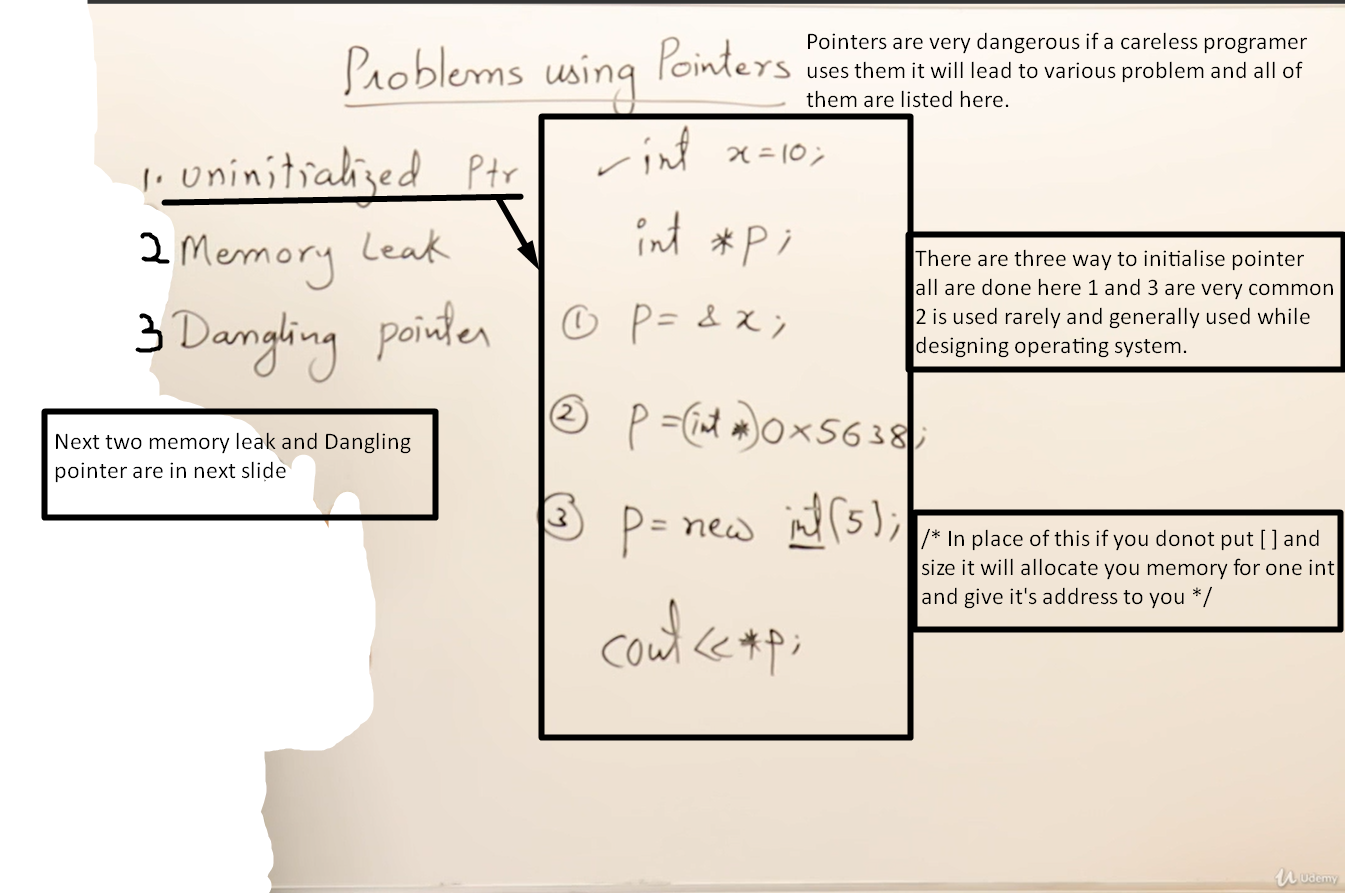 Problems using Pointers
Pointers are very dangerous if a careless programer
uses them it will lead to various problem and all of
them are listed here.
1. uninitialized Ptr
2 Memory Leak
3 Dangling pointer
Next two memory leak and Dangling
pointer are in next slide
✓ int x=10;
int *p;
① p= &x;
② p=(int *)0x5638;
③ p= new int(5);
cout<<*p;
There are three way to initialise pointer
all are done here 1 and 3 are very common
2 is used rarely and generally used while
designing operating system.
/* In place of this if you donot put [ ] and
size it will allocate you memory for one int
and give it's address to you */
Udemy